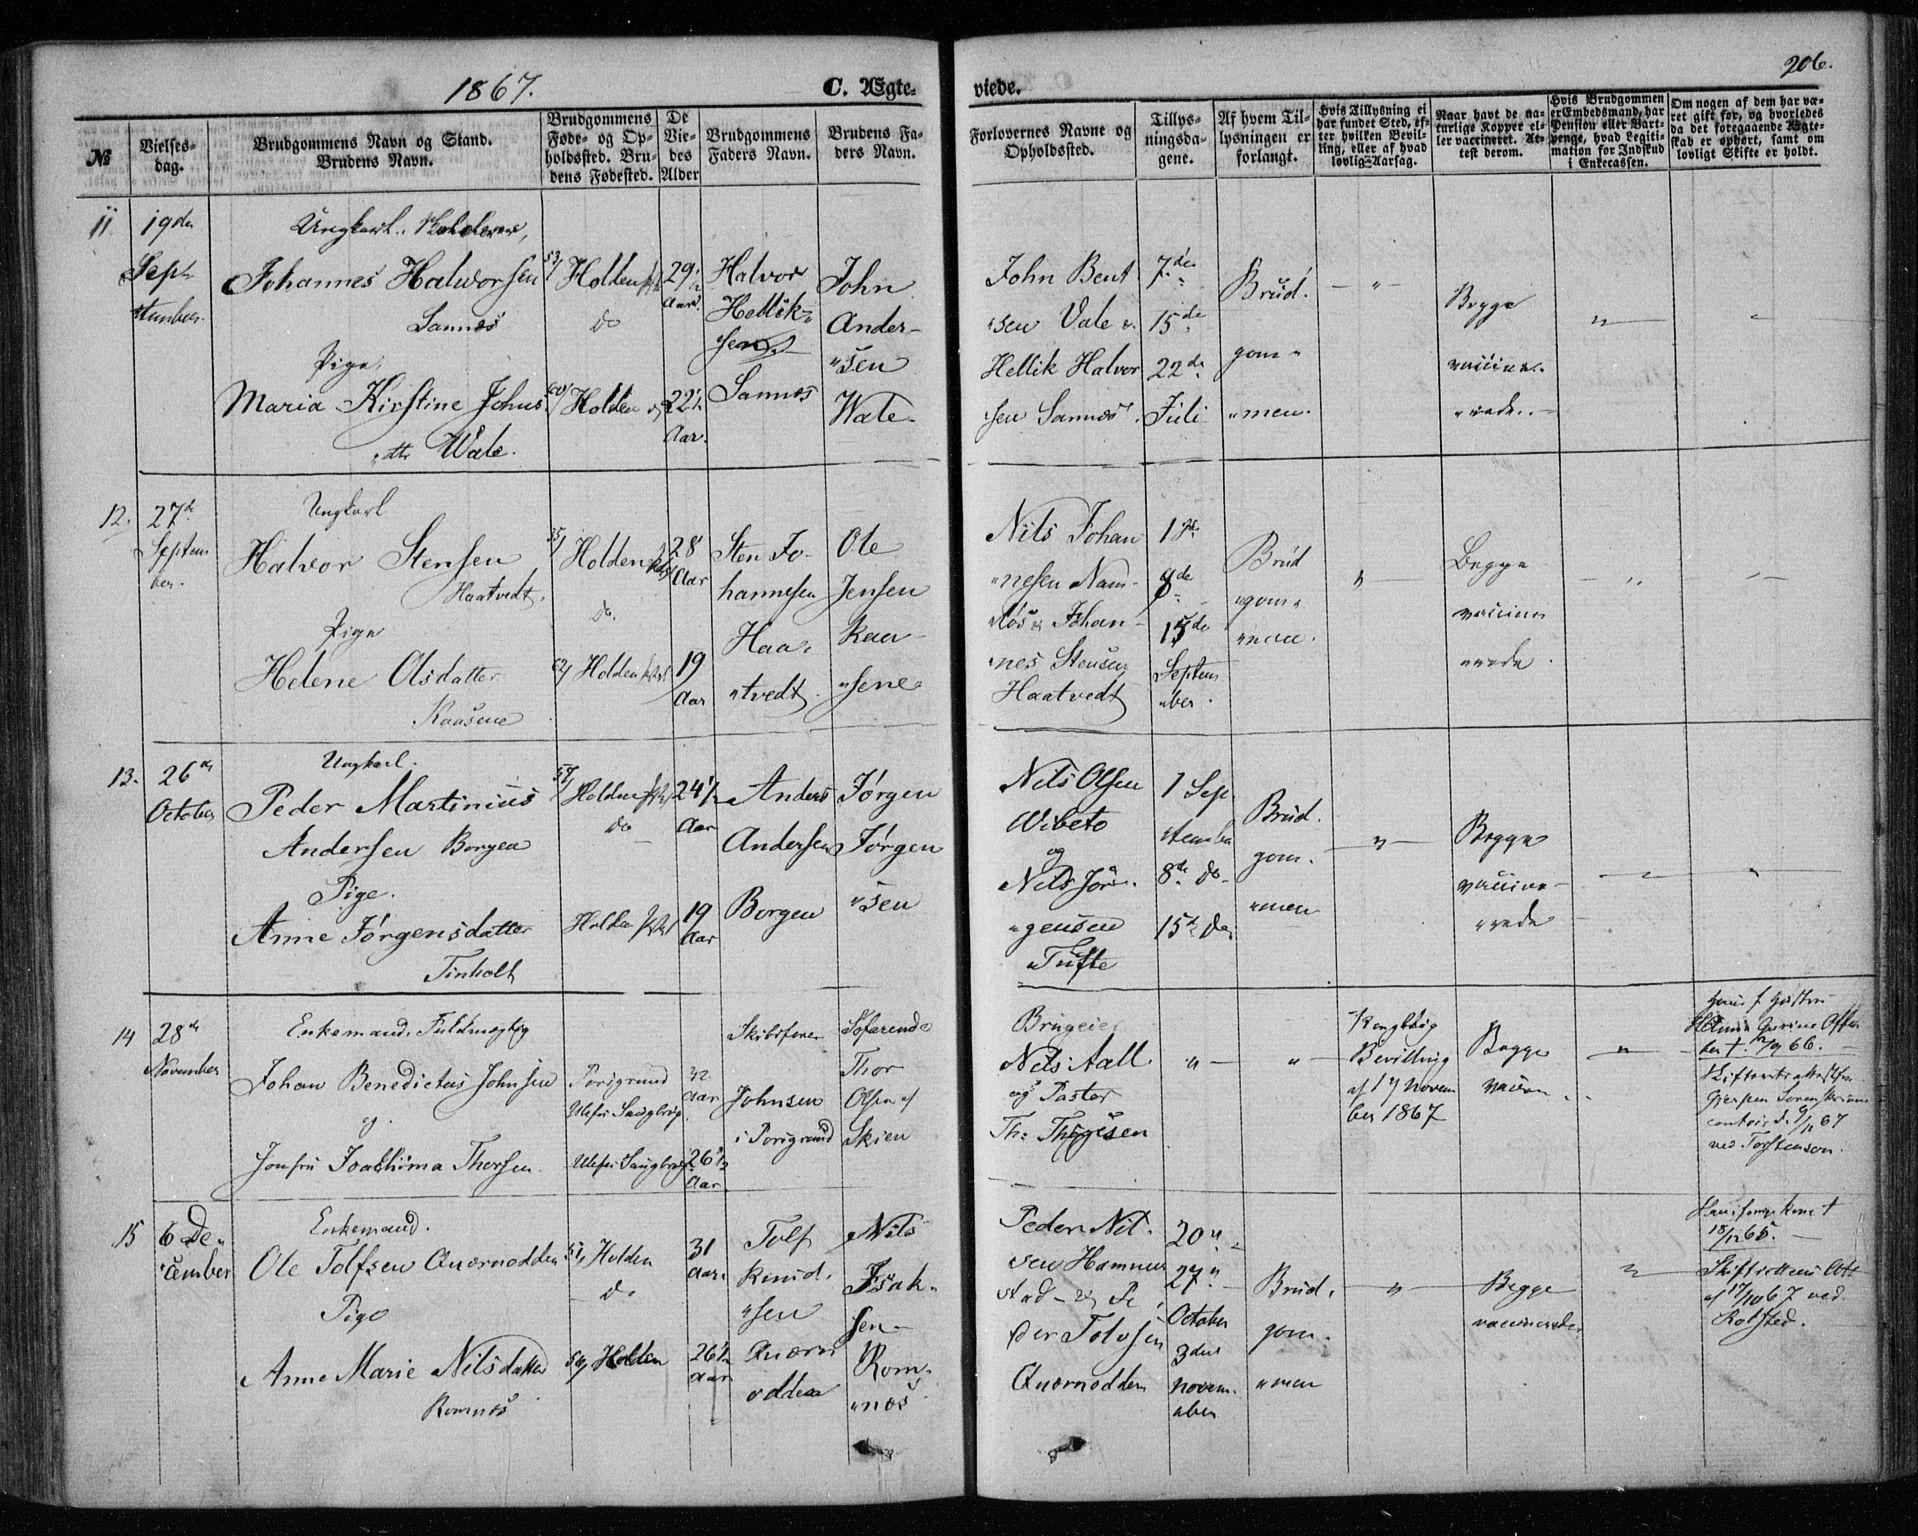 1867.
C. Ægte-
viede.
206.
№
Vielses-
dag.
Brudgommens Navn og Stand.
Brudens Navn.
Brudgommens
Føde- og Op-
holdssted. Bru-
dens Fødested.
De
Vie-
des
Alder
Brudgommens
Faders Navn.
Brudens Fa-
ders Navn.
Forlovernes Navne og
Opholdssted.
Tillys-
ningsda-
gene.
Af hvem Til-
lysningen er
forlangt.
Hvis Tillysning ei
har fundet Sted, ef-
ter hvilken Bevil-
ling, eller af hvad
lovlig Aarsag.
Naar havt de na-
turlige Kopper el-
ler vaccineret. At-
test derom.
Hvis Brudgommen
er Embedsmand, har
Pension eller Vart-
penge, hvad Legiti-
mation for Indskud
i Enkecassen.
Om nogen af dem har væ-
ret gift før, og hvorledes
da det foregaaende Ægte-
skab er ophørt, samt om
lovligt Skifte er holdt.
11
19de
Sep-
tember.
Ungkarl.
Johannes Halvorsen
Sannes
Pige,
Maria Kirstine Johns
"dtr Wale.
Holden
do
Holden
29½
Aar.
22½
Aar.
Halvor
Hellik-
sen
Sannes
John
Ander-
"sen
Wale.
John Bent
"sen Vale
Hellik Halvor
sen Sannes.
7de
15de
22de
Juli
Brud.
gom"
"men.
— " —
Begge
vaccine-
"rede.
— " —
"
12.
27de
Septem
ber.
Ungkarl
Halvor Stensen
Haatvedt.
Pige
Helene Olsdatter
Kaasene
Holden
do.
Holden
28
Aar
19
Aar
Sten Jo-
hannesen
Haa-
"tvedt.
Ole
Jensen
Kaa-
"sene
Nils Johan
"nesen Nam-
"løs & Johan-
"nes Stensen
Haatvedt
1ste
8de
15de
Septem
"ber.
Brud
"gom"
"men.
"
Begge
vaccine
"rede.
— " —
— " —
13.
26de
October
Ungkarl.
Peder Martinius
Andersen Borgen
Pige.
Anne Jørgensdatter
Tinholt
Holden
do
Holden
24½
Aar
19
Aar
Anders
Andersen
Borgen
Jørgen
Jørgen
"sen
Nils Olsen
Wibeto
og
Nils Jör-
"gensen
"Tufte
1 Sep.
"tember
8de do
15de do
Brud.
gom.
"men
— " —
Begge
vaccine-
"rede
— " —
"
14
28de
November
Enkemand, Fuldmægtig
Johan Benedictus Johnsen
og.
Jomfru Joachima Thorsen.
Porsgrund
Ulefos Saugbrug.
Ulefos Saugbrug.
32
Aar
26½
Aar.
Johnsen
i Porsgrund
Søfarende
Thor
Olsen af
Skien
Nils Aall.
og Pastor
Th: Thygesen
" —
"
Kongelig
Bevilling
af 19 Novem
ber 1867
Begge
vaccin
— " —
ved Torstenson.
15
6 De-
"cember
Enkemand.
Ole Tolfsen Quærnodden
Pige
Anne Marie Nilsdatter
Romnes
Holden
do
Holden
31
Aar.
26½
Aar
Tolf
Knud.
"sen
Quærn
odden
Nils
Isak-
sen
Rom-
"næs
Peder Nil.
sen Hamner
stad - og Pe
der Tolvsen
Quærnodden
20
27
October
3die
Novem.
"ber
Brud.
gom.
"men
"
Begge
vaccinerede
"
18/12 65.
af 17/10 67 ved
Rolsted.